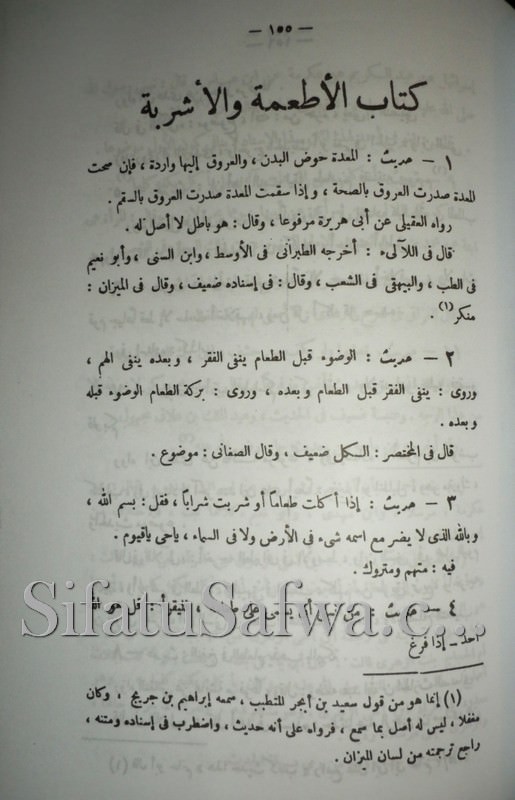 — ١٥٥ —
كتاب الأطعمة والأشربة
١ — حديث : المعدة حوض البدن ، والعروق إليها واردة ، فإن صحت
المعدة صدرت العروق بالصحة ، وإذا سقمت المعدة صدرت العروق بالسقم .
رواه العقيلى عن أبى هريرة مرفوعا ، وقال : هو باطل لا أصل له .
قال فى اللآلىء : أخرجه الطبرانى فى الأوسط ، وابن السنى ، وأبو نعيم
فى الطب ، والبيهقى فى الشعب ، وقال : فى إسناده ضعيف ، وقال فى الميزان :
منكر (١) .
٢ — حديث : الوضوء قبل الطعام ينفى الفقر ، وبعده ينفى الهم ،
وروى : ينفى الفقر قبل الطعام وبعده ، وروى : بركة الطعام الوضوء قبله
وبعده .
قال فى المختصر : الكل ضعيف ، وقال الصغانى : موضوع .
٣ — حديث : إذا أكلت طعاماً أو شربت شراباً ، فقل : بسم الله ،
وبالله الذى لا يضر مع اسمه شىء فى الأرض ولا فى السماء ، ياحى ياقيوم .
فيه : متهم ومتروك .
٤ — حديث : من نسى أن يسمى على طعامه ، فليقرأ : قل هو الله
أحد - إذا فرغ
SifatuSafwa.c
(١) إنما هو من قول سعيد بن أبجر المتطبب ، سمعه إبراهيم بن جريج ، وكان
مغفلا ، ليس له أصل بما سمع ، فرواه على أنه حديث ، واضطرب فى إسناده ومتنه ،
راجع ترجمته من لسان الميزان .